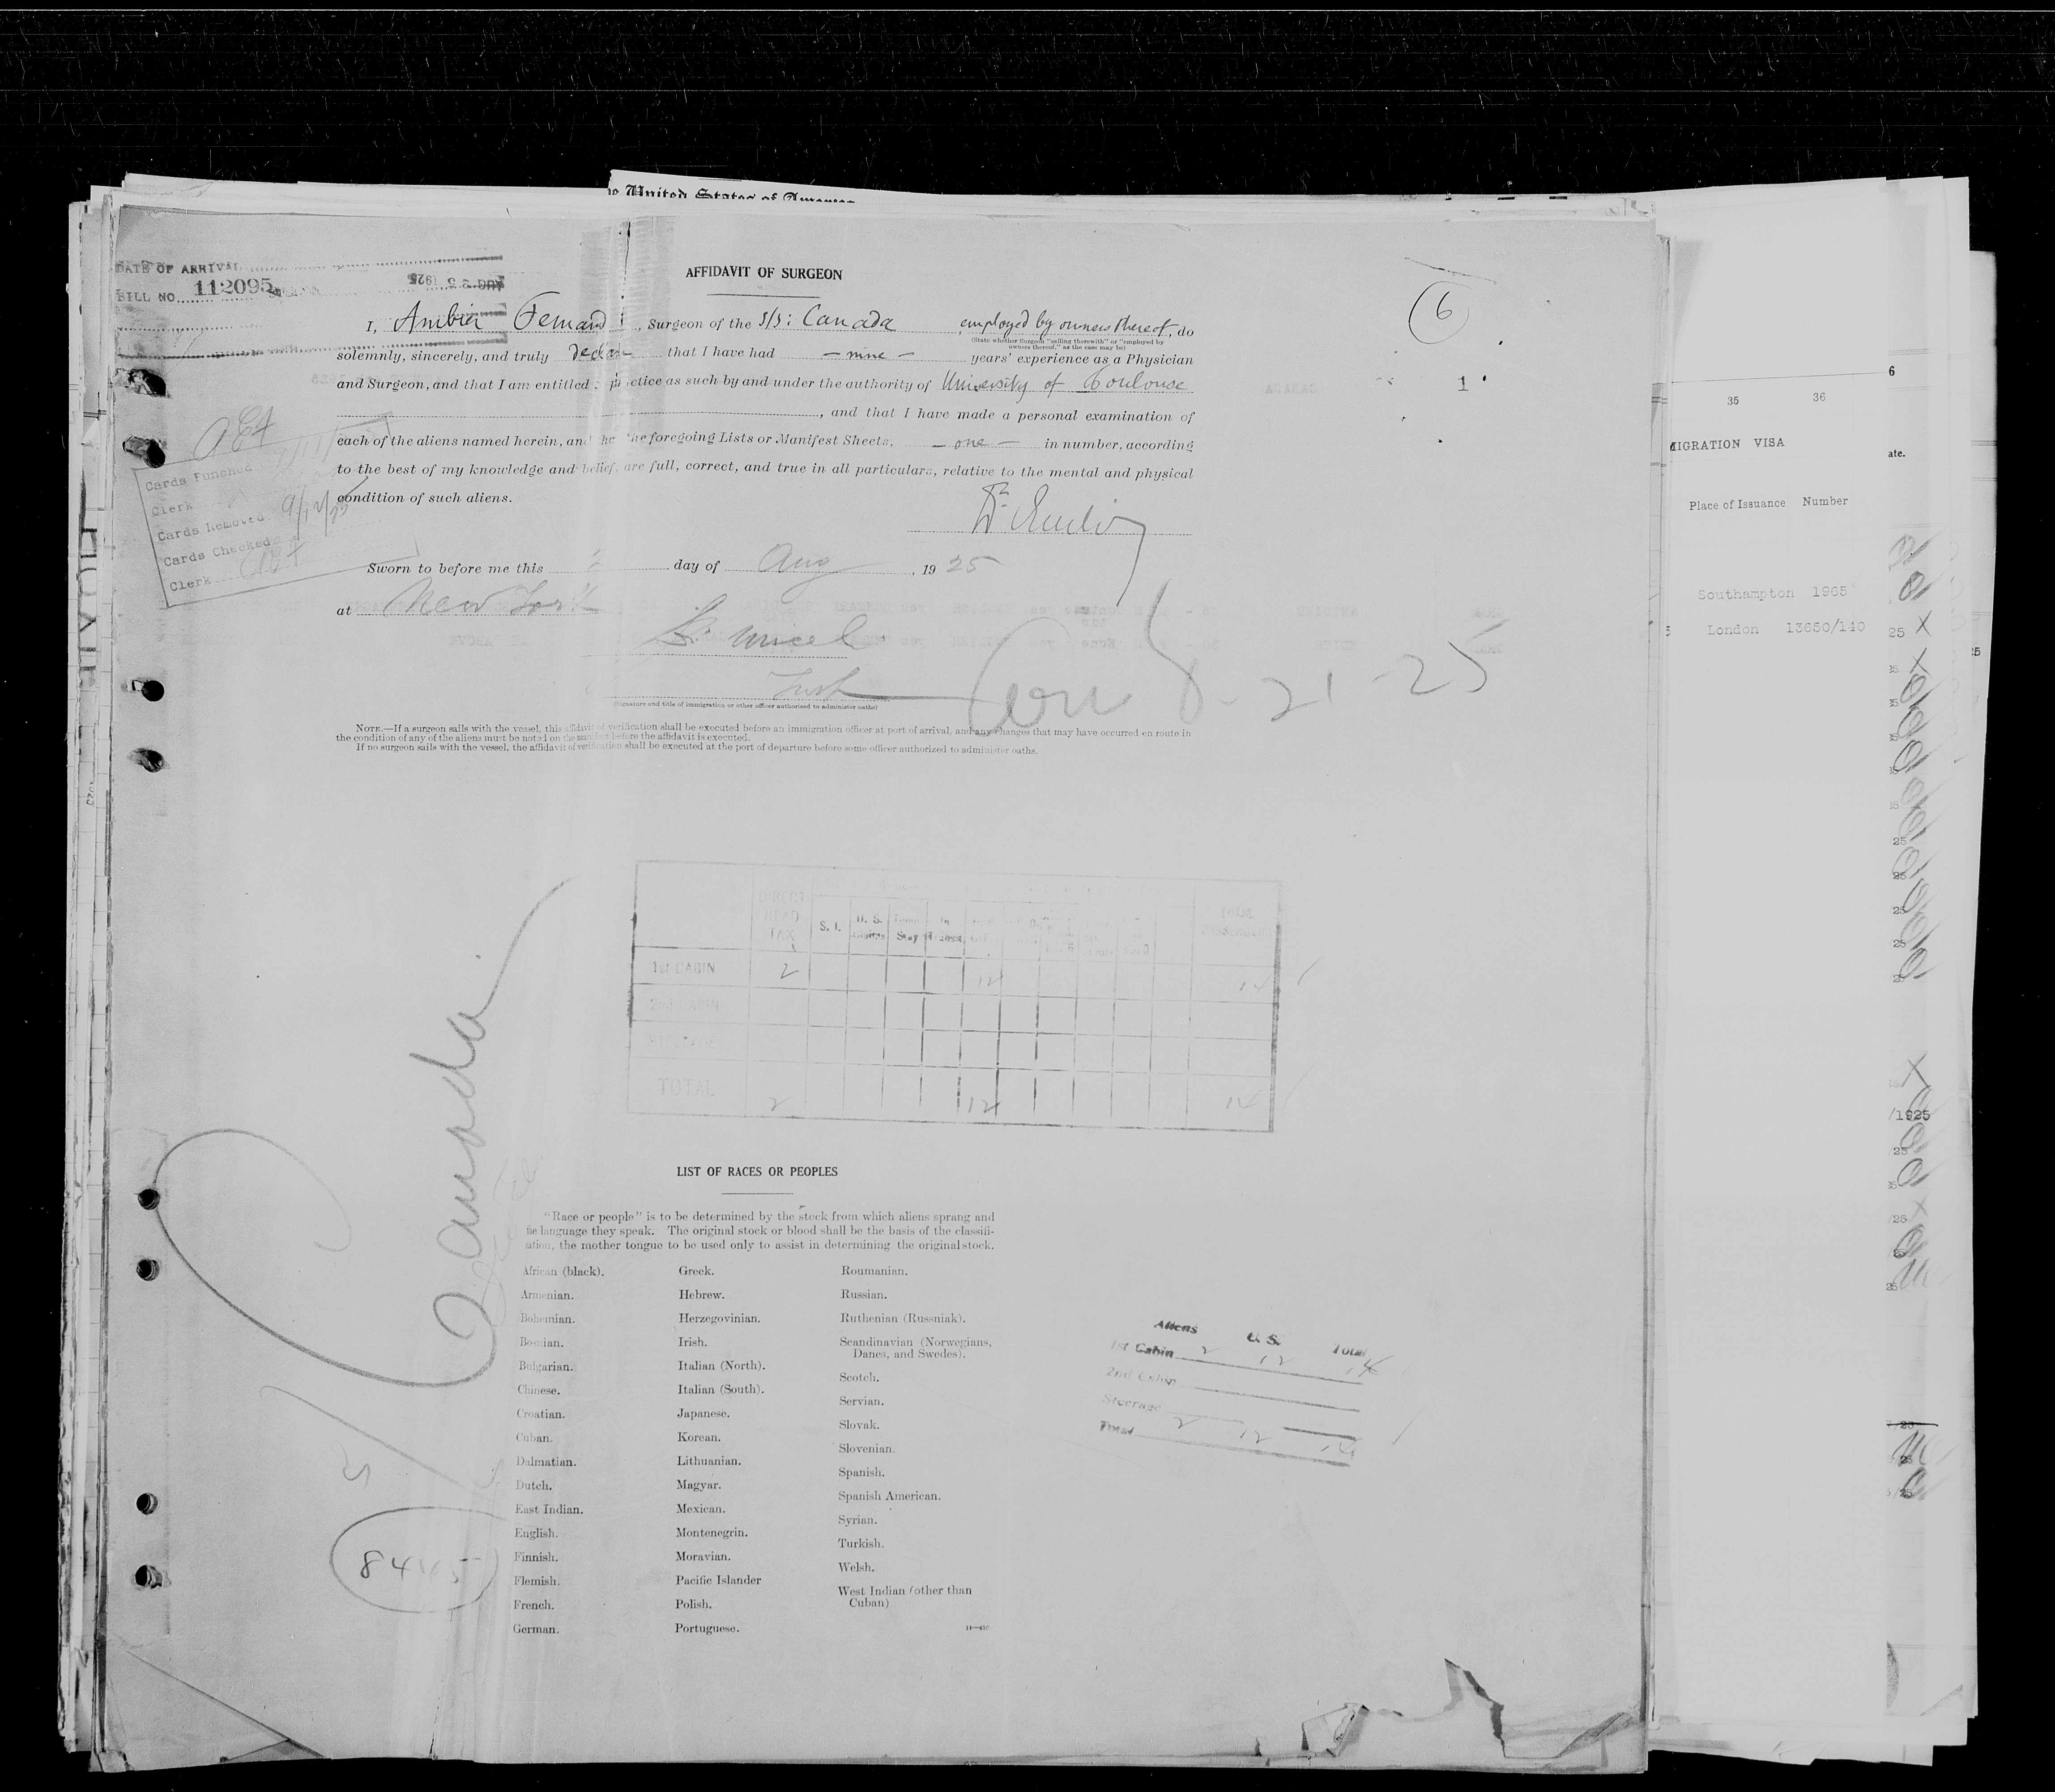 United States of America
DATE OF ARRIVAL
BILL NO. 112095
AFFIDAVIT OF SURGEON
6
I, Ambier Fernand, Surgeon of the S/S: Canada employed by owners thereof, do
(State whether Surgeon "sailing therewith" or "employed by
owners thereof," as the case may be)
solemnly, sincerely, and truly declare that I have had - nine - years' experience as a Physician
and Surgeon, and that I am entitled practice as such by and under the authority of University of Toulouse
1
, and that I have made a personal examination of
each of the aliens named herein, and the foregoing Lists or Manifest Sheets, - one - in number, according
to the best of my knowledge and belief, are full, correct, and true in all particulars, relative to the mental and physical
condition of such aliens.
Cards Punched
Clerk
Cards Removed 9/12/25
Cards Checked
Clerk
Sworn to before me this day of Aug, 19 25
at New York
8-21-25
(Signature and title of immigration or other officer authorized to administer oaths)
NOTE.—If a surgeon sails with the vessel, this affidavit of verification shall be executed before an immigration officer at port of arrival, and any changes that may have occurred en route in
the condition of any of the aliens must be noted on the manifest before the affidavit is executed.
If no surgeon sails with the vessel, the affidavit of verification shall be executed at the port of departure before some officer authorized to administer oaths.
DIRECT HEAD TAX S. I. U. S. Stay In Transit TOTAL
1st CABIN 2 12 14
2nd CABIN
TOTAL 2 12 14
Canada
LIST OF RACES OR PEOPLES
"Race or people" is to be determined by the stock from which aliens sprang and
the language they speak. The original stock or blood shall be the basis of the classifi-
cation, the mother tongue to be used only to assist in determining the original stock.
African (black).
Armenian.
Bohemian.
Bosnian.
Bulgarian.
Chinese.
Croatian.
Cuban.
Dalmatian.
Dutch.
East Indian.
English.
Finnish.
Flemish.
French.
German.
Greek.
Hebrew.
Herzegovinian.
Irish.
Italian (North).
Italian (South).
Japanese.
Korean.
Lithuanian.
Magyar.
Mexican.
Montenegrin.
Moravian.
Pacific Islander
Polish.
Portuguese.
Roumanian.
Russian.
Ruthenian (Russniak).
Scandinavian (Norwegians,
Danes, and Swedes).
Scotch.
Servian.
Slovak.
Slovenian.
Spanish.
Spanish American.
Syrian.
Turkish.
Welsh.
West Indian (other than
Cuban)
Aliens U. S. Total
1st Cabin 2 12 14
2nd Cabin
Steerage
Total 2 12 14
6
35 36
MIGRATION VISA
ate.
Place of Issuance Number
Southampton 1965
London 13650/140
/1925